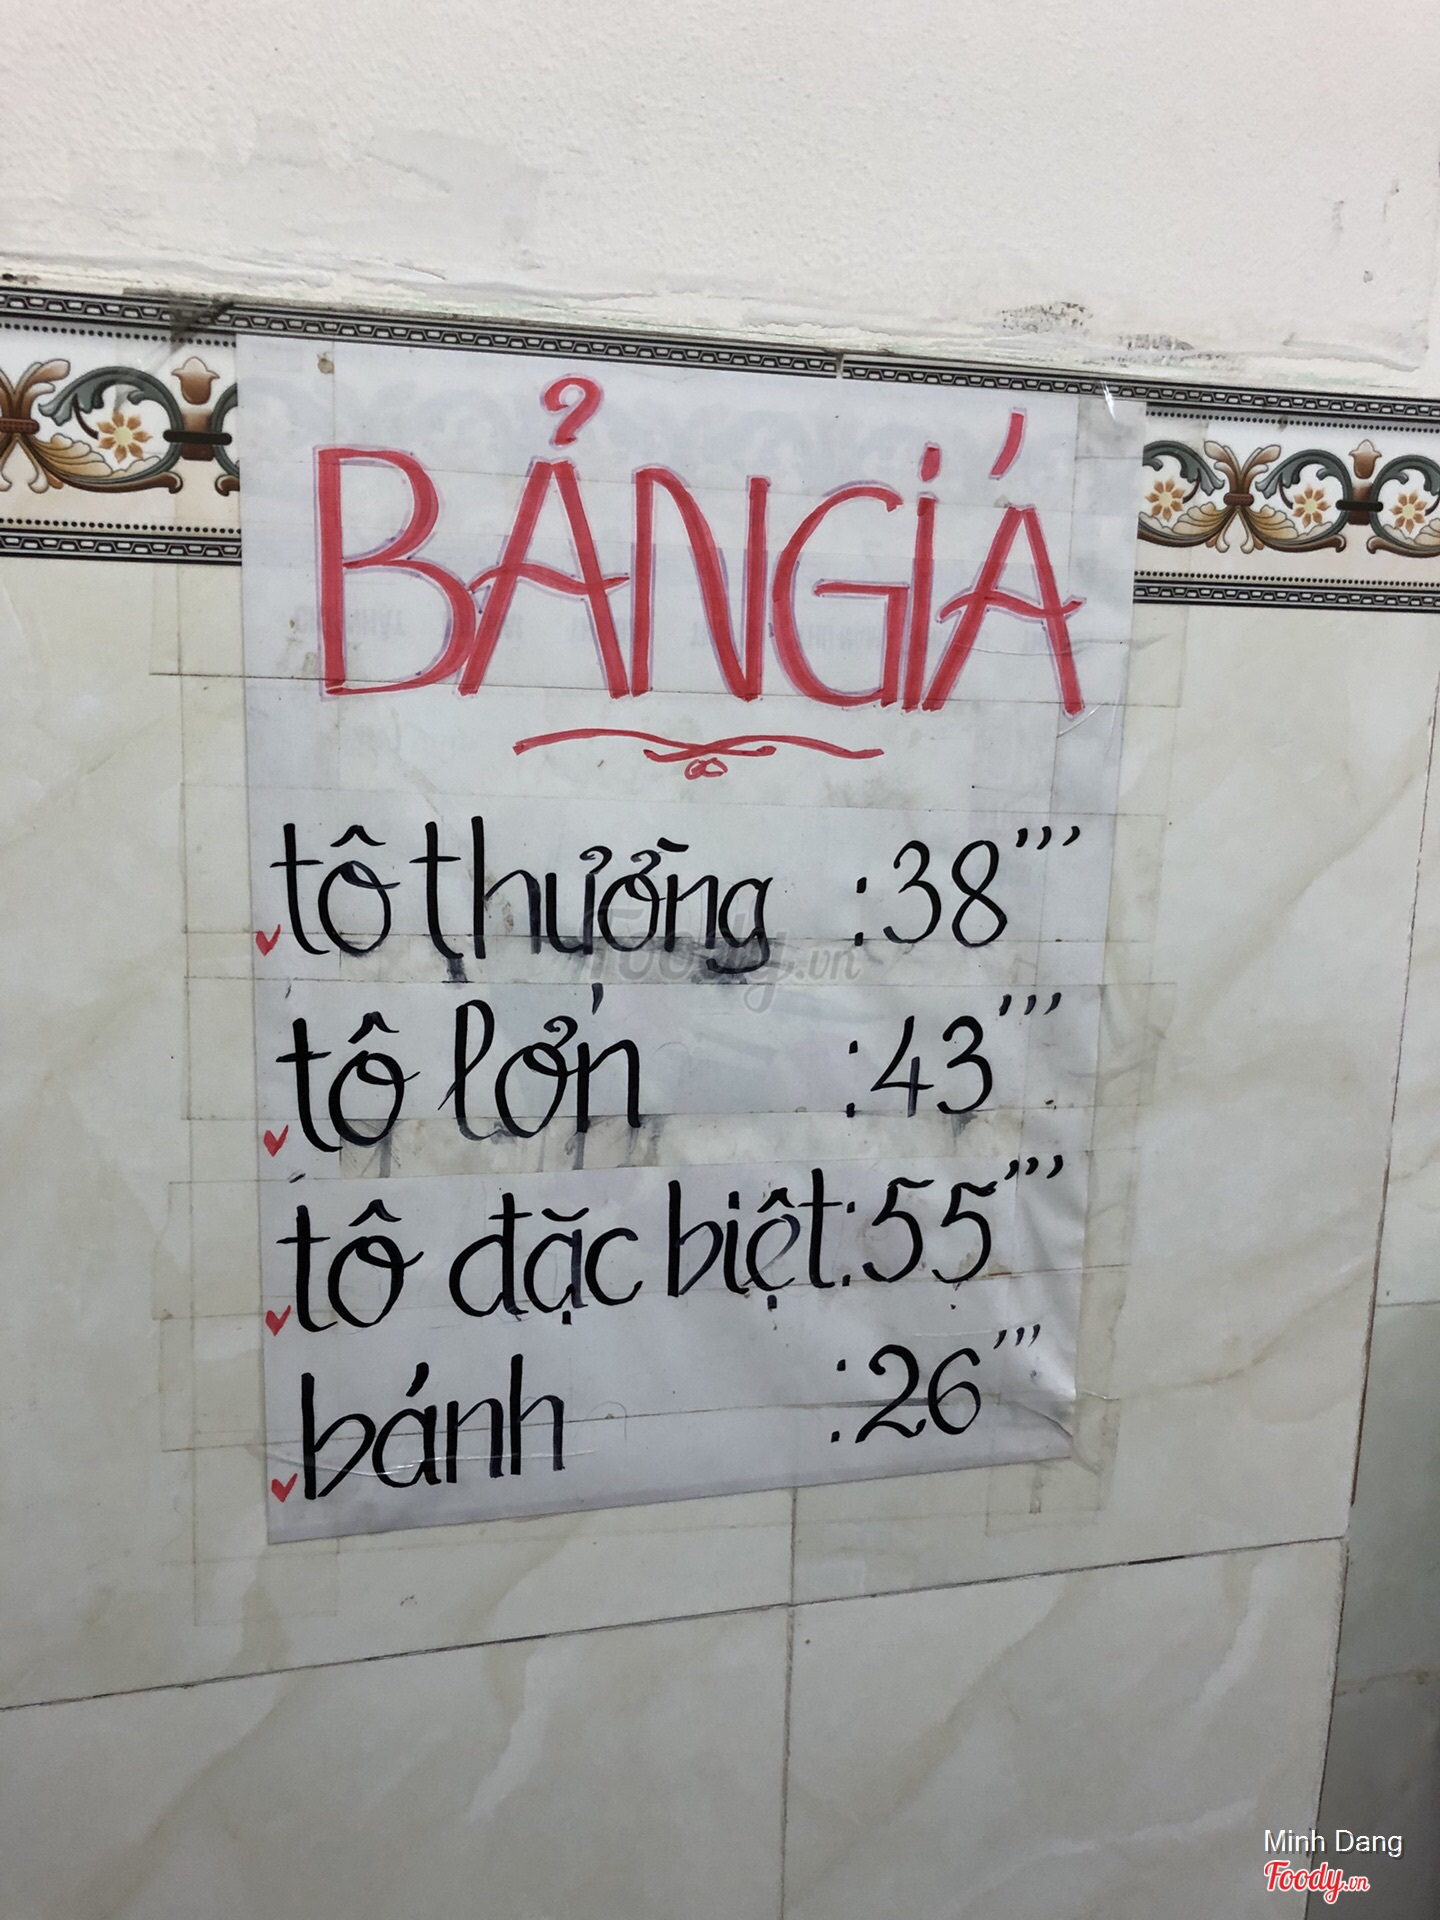 BẢN GIÁ
tô thường :38'''
tô lớn :43'''
tô đặc biệt :55'''
bánh :26'''
Foody.vn
Minh Dang
Foody.vn